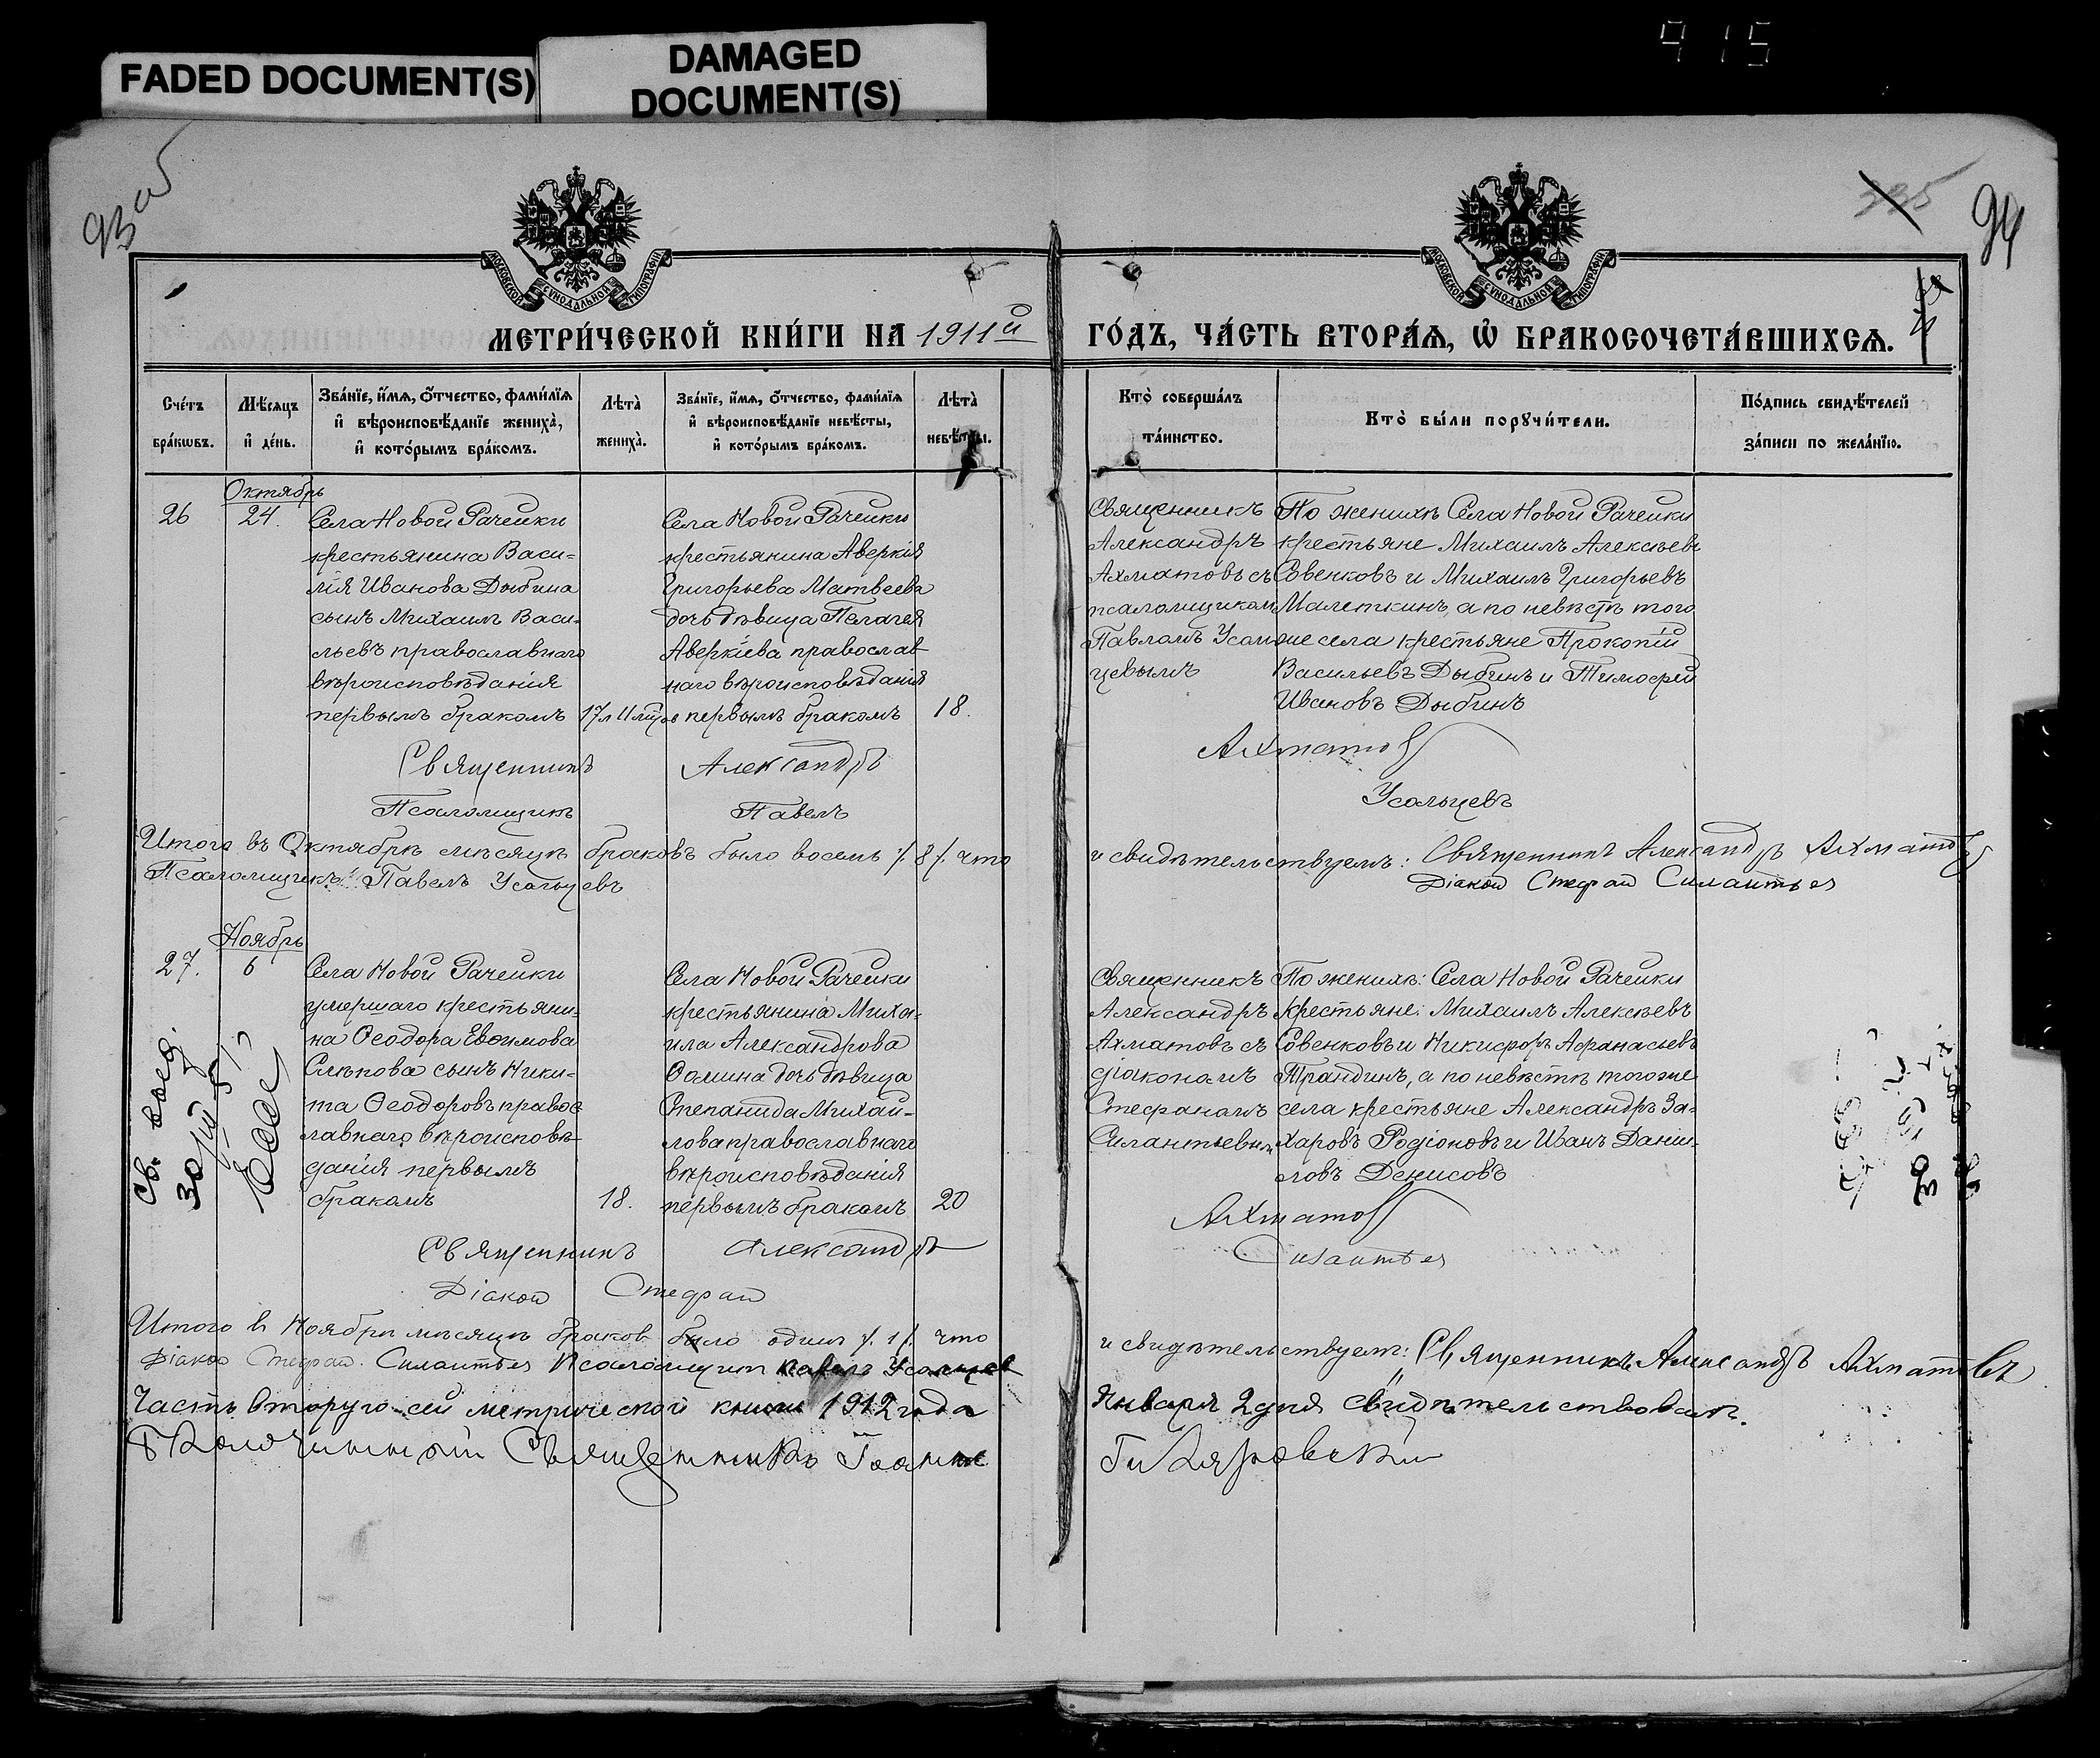 FADED DOCUMENT(S)
DAMAGED
DOCUMENT(S)
915
93 об
335
94
МОСКОВСКОЙ СѴНОДАЛЬНОЙ ТИПОГРАФІИ
МОСКОВСКОЙ СѴНОДАЛЬНОЙ ТИПОГРАФІИ
МЕТРИ́ЧЕСКОЙ КНИ́ГИ НА 1911й
ГО́ДЪ, ЧА́СТЬ ВТОРА́Ѧ, Ѽ БРАКОСОЧЕТА́ВШИХСѦ.
Сче́тъ
бра́кѡвъ.
Мѣ́сѧцъ
и҆ де́нь.
Зва́нїе, и҆́мѧ, ѻ҆́тчество, фами́лїѧ
и҆ вѣроисповѣ́данїе жениха̀,
и҆ кото́рымъ бра́комъ.
Лѣта̀
жениха̀.
Зва́нїе, и҆́мѧ, ѻ҆́тчество, фами́лїѧ
и҆ вѣроисповѣ́данїе невѣ́сты,
и҆ кото́рымъ бра́комъ.
Лѣта̀
невѣ́сты.
Кто̀ соверша́лъ
та́инство.
Кто̀ бы́ли порꙋчи́тели.
По́дпись свидѣ́телей
за́писи по жела́нїю.
Октябрь
26
24.
Села Новой Рачейки
крестьянина Васи-
лія Иванова Дыбина
сынъ Михаилъ Васи-
льевъ православнаго
вѣроисповѣданія
первымъ бракомъ
17 л 11 мѣс
Села Новой Рачейки
крестьянина Аверкія
Григорьева Матвеева
дочь дѣвица Пелагея
Аверкіева православ-
наго вѣроисповѣданія
первымъ бракомъ
18.
Священникъ
Александръ
Ахматовъ съ
псаломщикомъ
Павломъ Усоль
цевымъ
По женихѣ Села Новой Рачейки
крестьяне Михаилъ Алексѣевъ
Совенковъ и Михаилъ Григорьевъ
Малеткинъ, а по невѣстѣ того
же села крестьяне Прокопій
Васильевъ Дыбинъ и Тимофей
Ивановъ Дыбинъ
Священникъ Александръ Ахматовъ
Псаломщикъ Павелъ Усольцевъ
Итого въ Октябрѣ мѣсяцѣ браковъ было восемь /.8/. что и свидѣтельствуемъ: Священникъ Александръ Ахматовъ
Псаломщикъ Павелъ Усольцевъ Діакон Стефан Силантьев
Ноябрь
27.
6
Села Новой Рачейки
умершаго крестьяни-
на Ѳеодора Евѳимова
Слѣпова сынъ Ники-
та Ѳеодоровъ правос-
лавнаго вѣроисповѣ-
данія первымъ
бракомъ
18.
Села Новой Рачейки
крестьянина Миха-
ила Александрова
Ѳомина дочь дѣвица
Степанида Михай-
лова православнаго
вѣроисповѣданія
первымъ бракомъ
20
Священникъ
Александръ
Ахматовъ съ
діакономъ
Стефаномъ
Силантьевым
По женихѣ: Села Новой Рачейки
крестьяне: Михаилъ Алексѣевъ
Совенковъ и Никифоръ Афанасьевъ
Трандинъ, а по невѣстѣ того же
села крестьяне Александръ За-
харовъ Родіоновъ и Иванъ Дани-
ловъ Денисовъ
Св. выд.
Священникъ Александръ Ахматовъ
Діакон Стефан Силантьев
Итого в Ноябрѣ мѣсяцѣ браков было один /.1/. что и свидѣтельствуемъ: Священникъ Александръ Ахматовъ
Діакон Стефан Силантьев Псаломщик Павелъ Усольцев
Часть вторую сей метрической книги 1912 года Января 2 дня свидѣтельствовалъ.
Благочинный Священникъ Іоаннъ